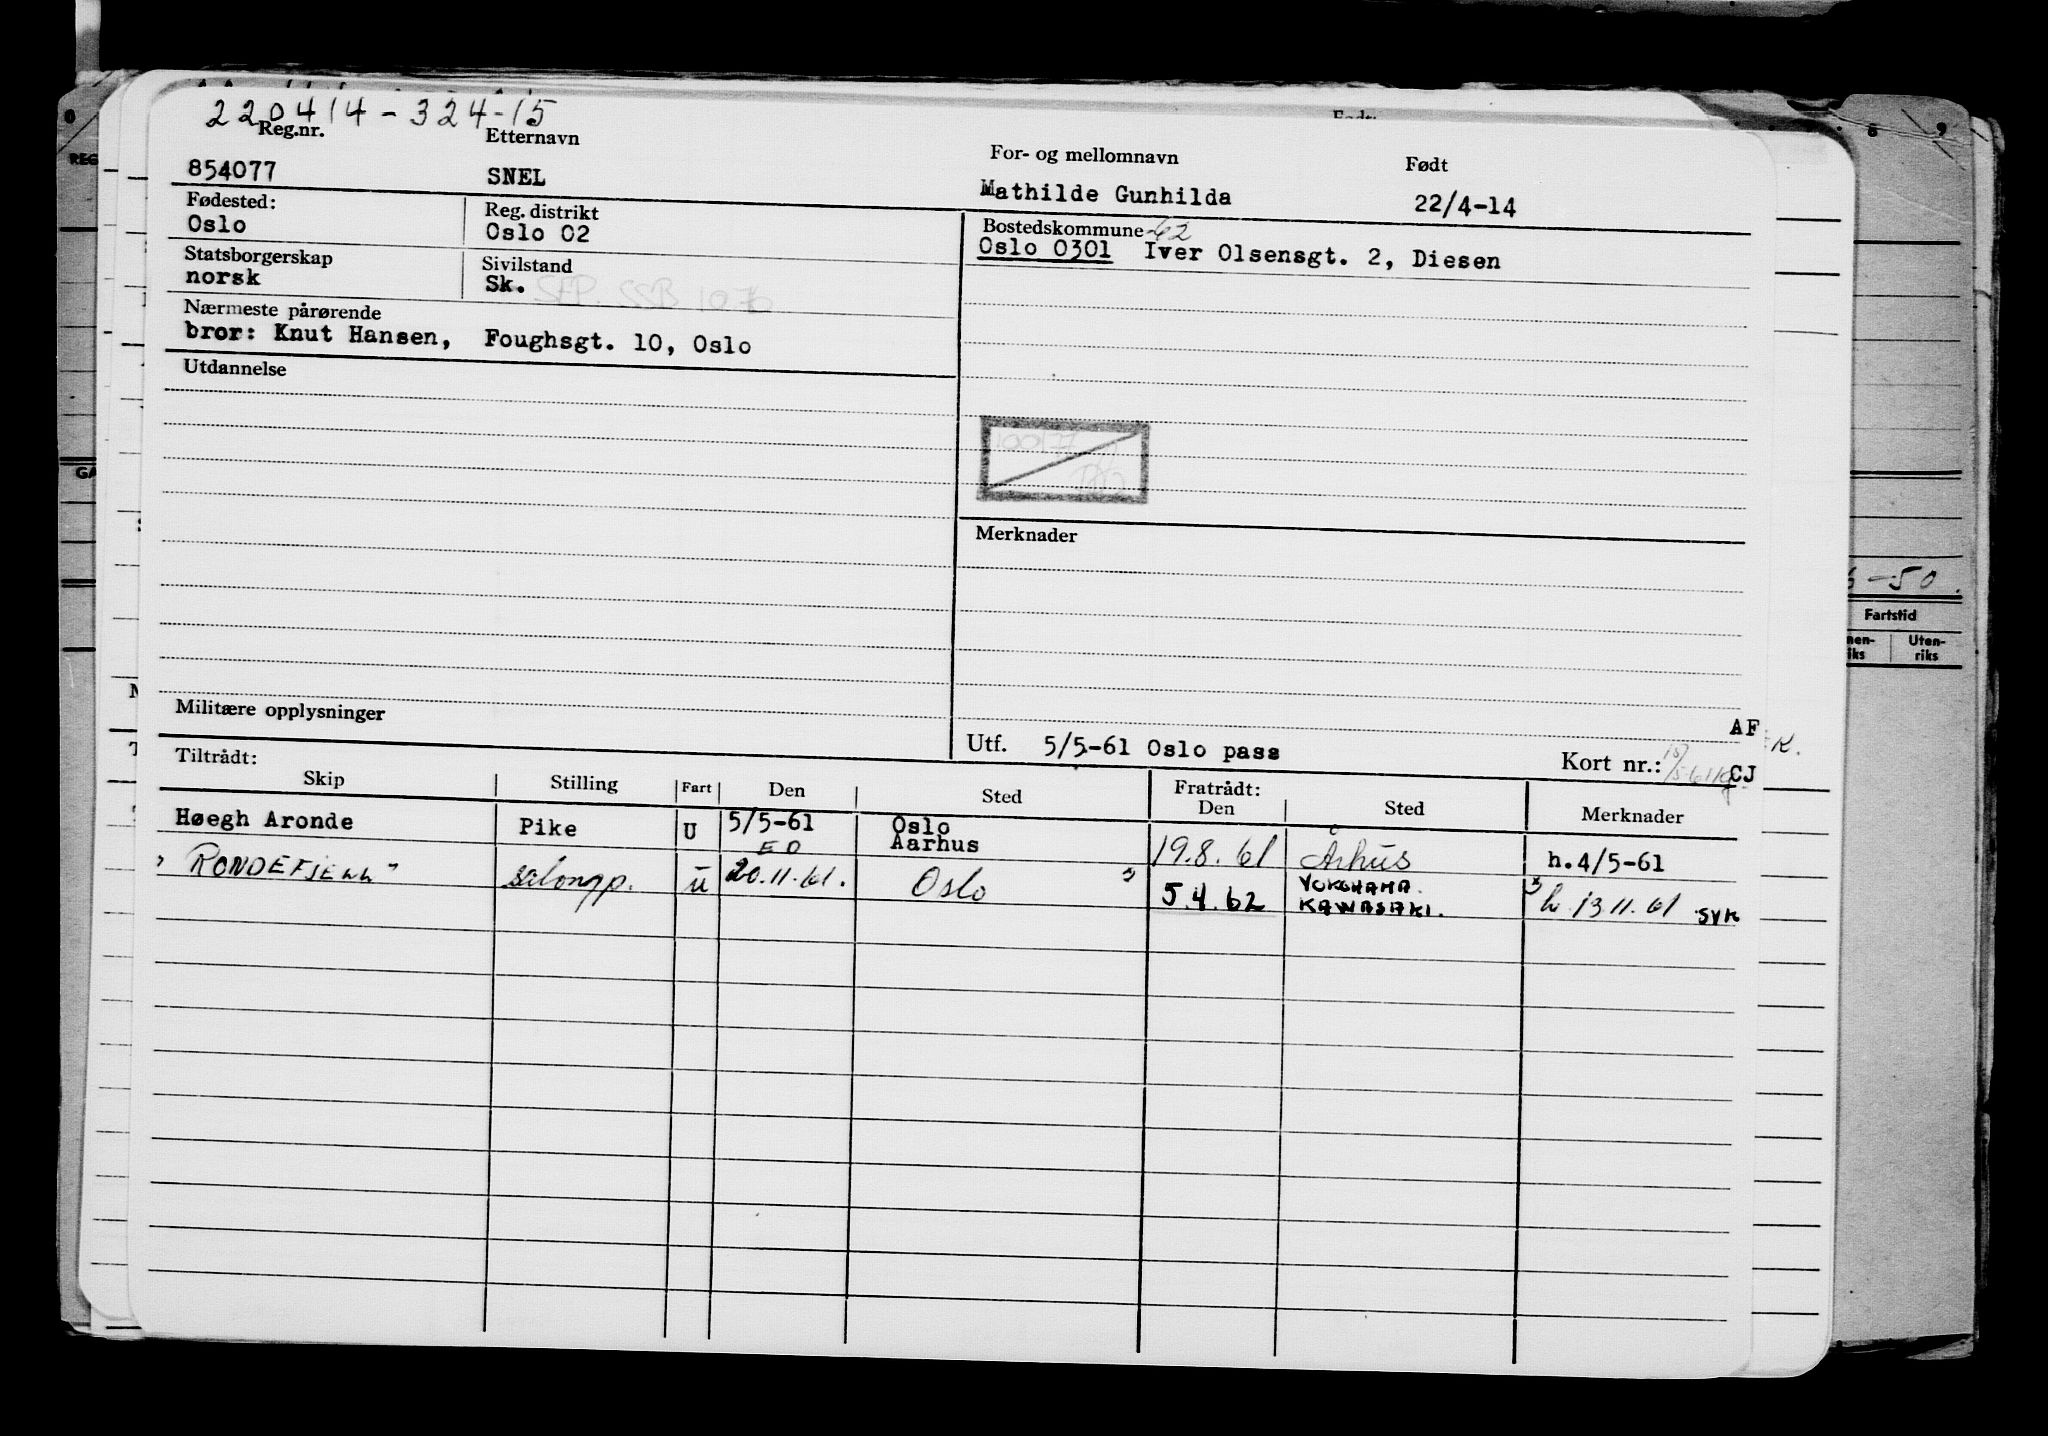 220414-324-15
Reg.nr. Etternavn For- og mellomnavn Født
854077 SNEL Mathilde Gunhilda 22/4-14
Fødested: Reg. distrikt Bostedskommune -62
Oslo Oslo 02 Oslo 0301 Iver Olsensgt. 2, Diesen
Statsborgerskap Sivilstand
norsk Sk.
Nærmeste pårørende
bror: Knut Hansen, Foughsgt. 10, Oslo
Utdannelse
Merknader
Militære opplysninger
AF
Utf. 5/5-61 Oslo pass Kort nr.: CJ
K.
Tiltrådt: Fratrådt:
Skip Stilling Fart Den Sted Den Sted Merknader
Høegh Aronde Pike U 5/5-61 Oslo
Aarhus 19.8.61 Århus h.4/5-61
"RONDEFJELL" salongp. U 20.11.61. Oslo 5.4.62 YOKOHAMA.
KAWASAKI. h. 13.11.61 SYK
6-50.
Fartstid
Uten-
riks
8 9